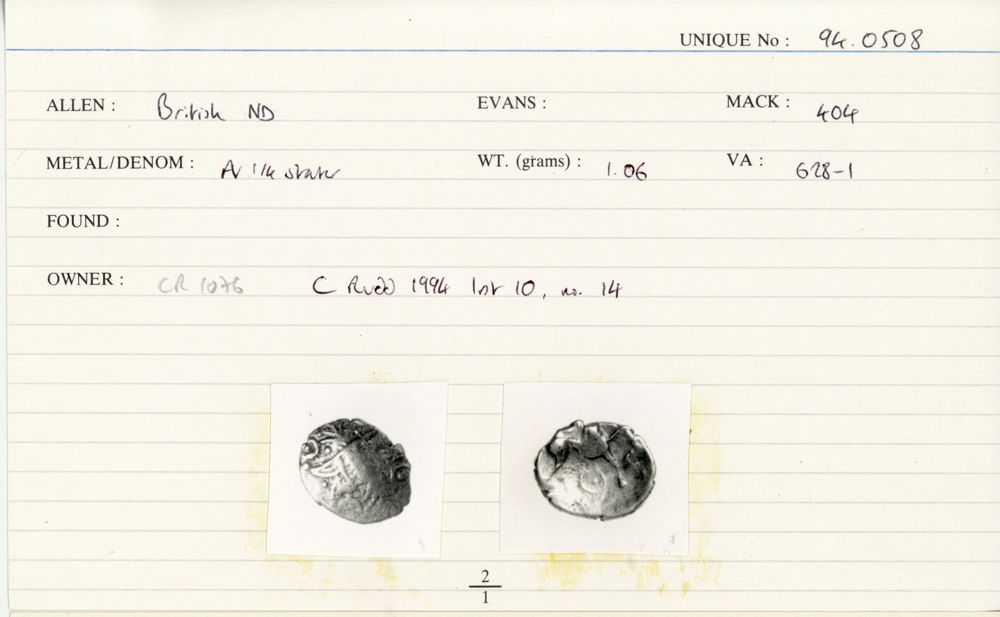 UNIQUE No : 94.0508
ALLEN : British ND EVANS : MACK : 404
METAL/DENOM : AV 1/4 stater WT. (grams) : 1.06 VA : 628-1
FOUND :
OWNER : CR 1076 C Rudd 1994 list 10, no. 14
2
1